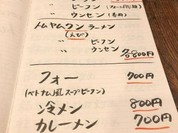 〃 ビーフン
〃 ウンセン
トムヤムクンラーメン
(えび)
〃 ビーフン
〃 ウンセン
各800円
フォー 700円
(ベトナム風スープビーフン)
冷メン 800円
カレーメン 700円